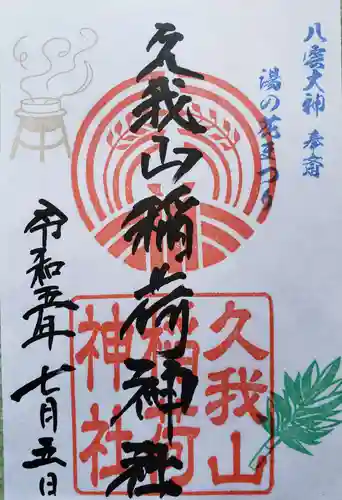 八雲大神 奉斎
湯の花まつり
久我山稲荷神社
久我山
稲荷
神社
令和五年七月五日